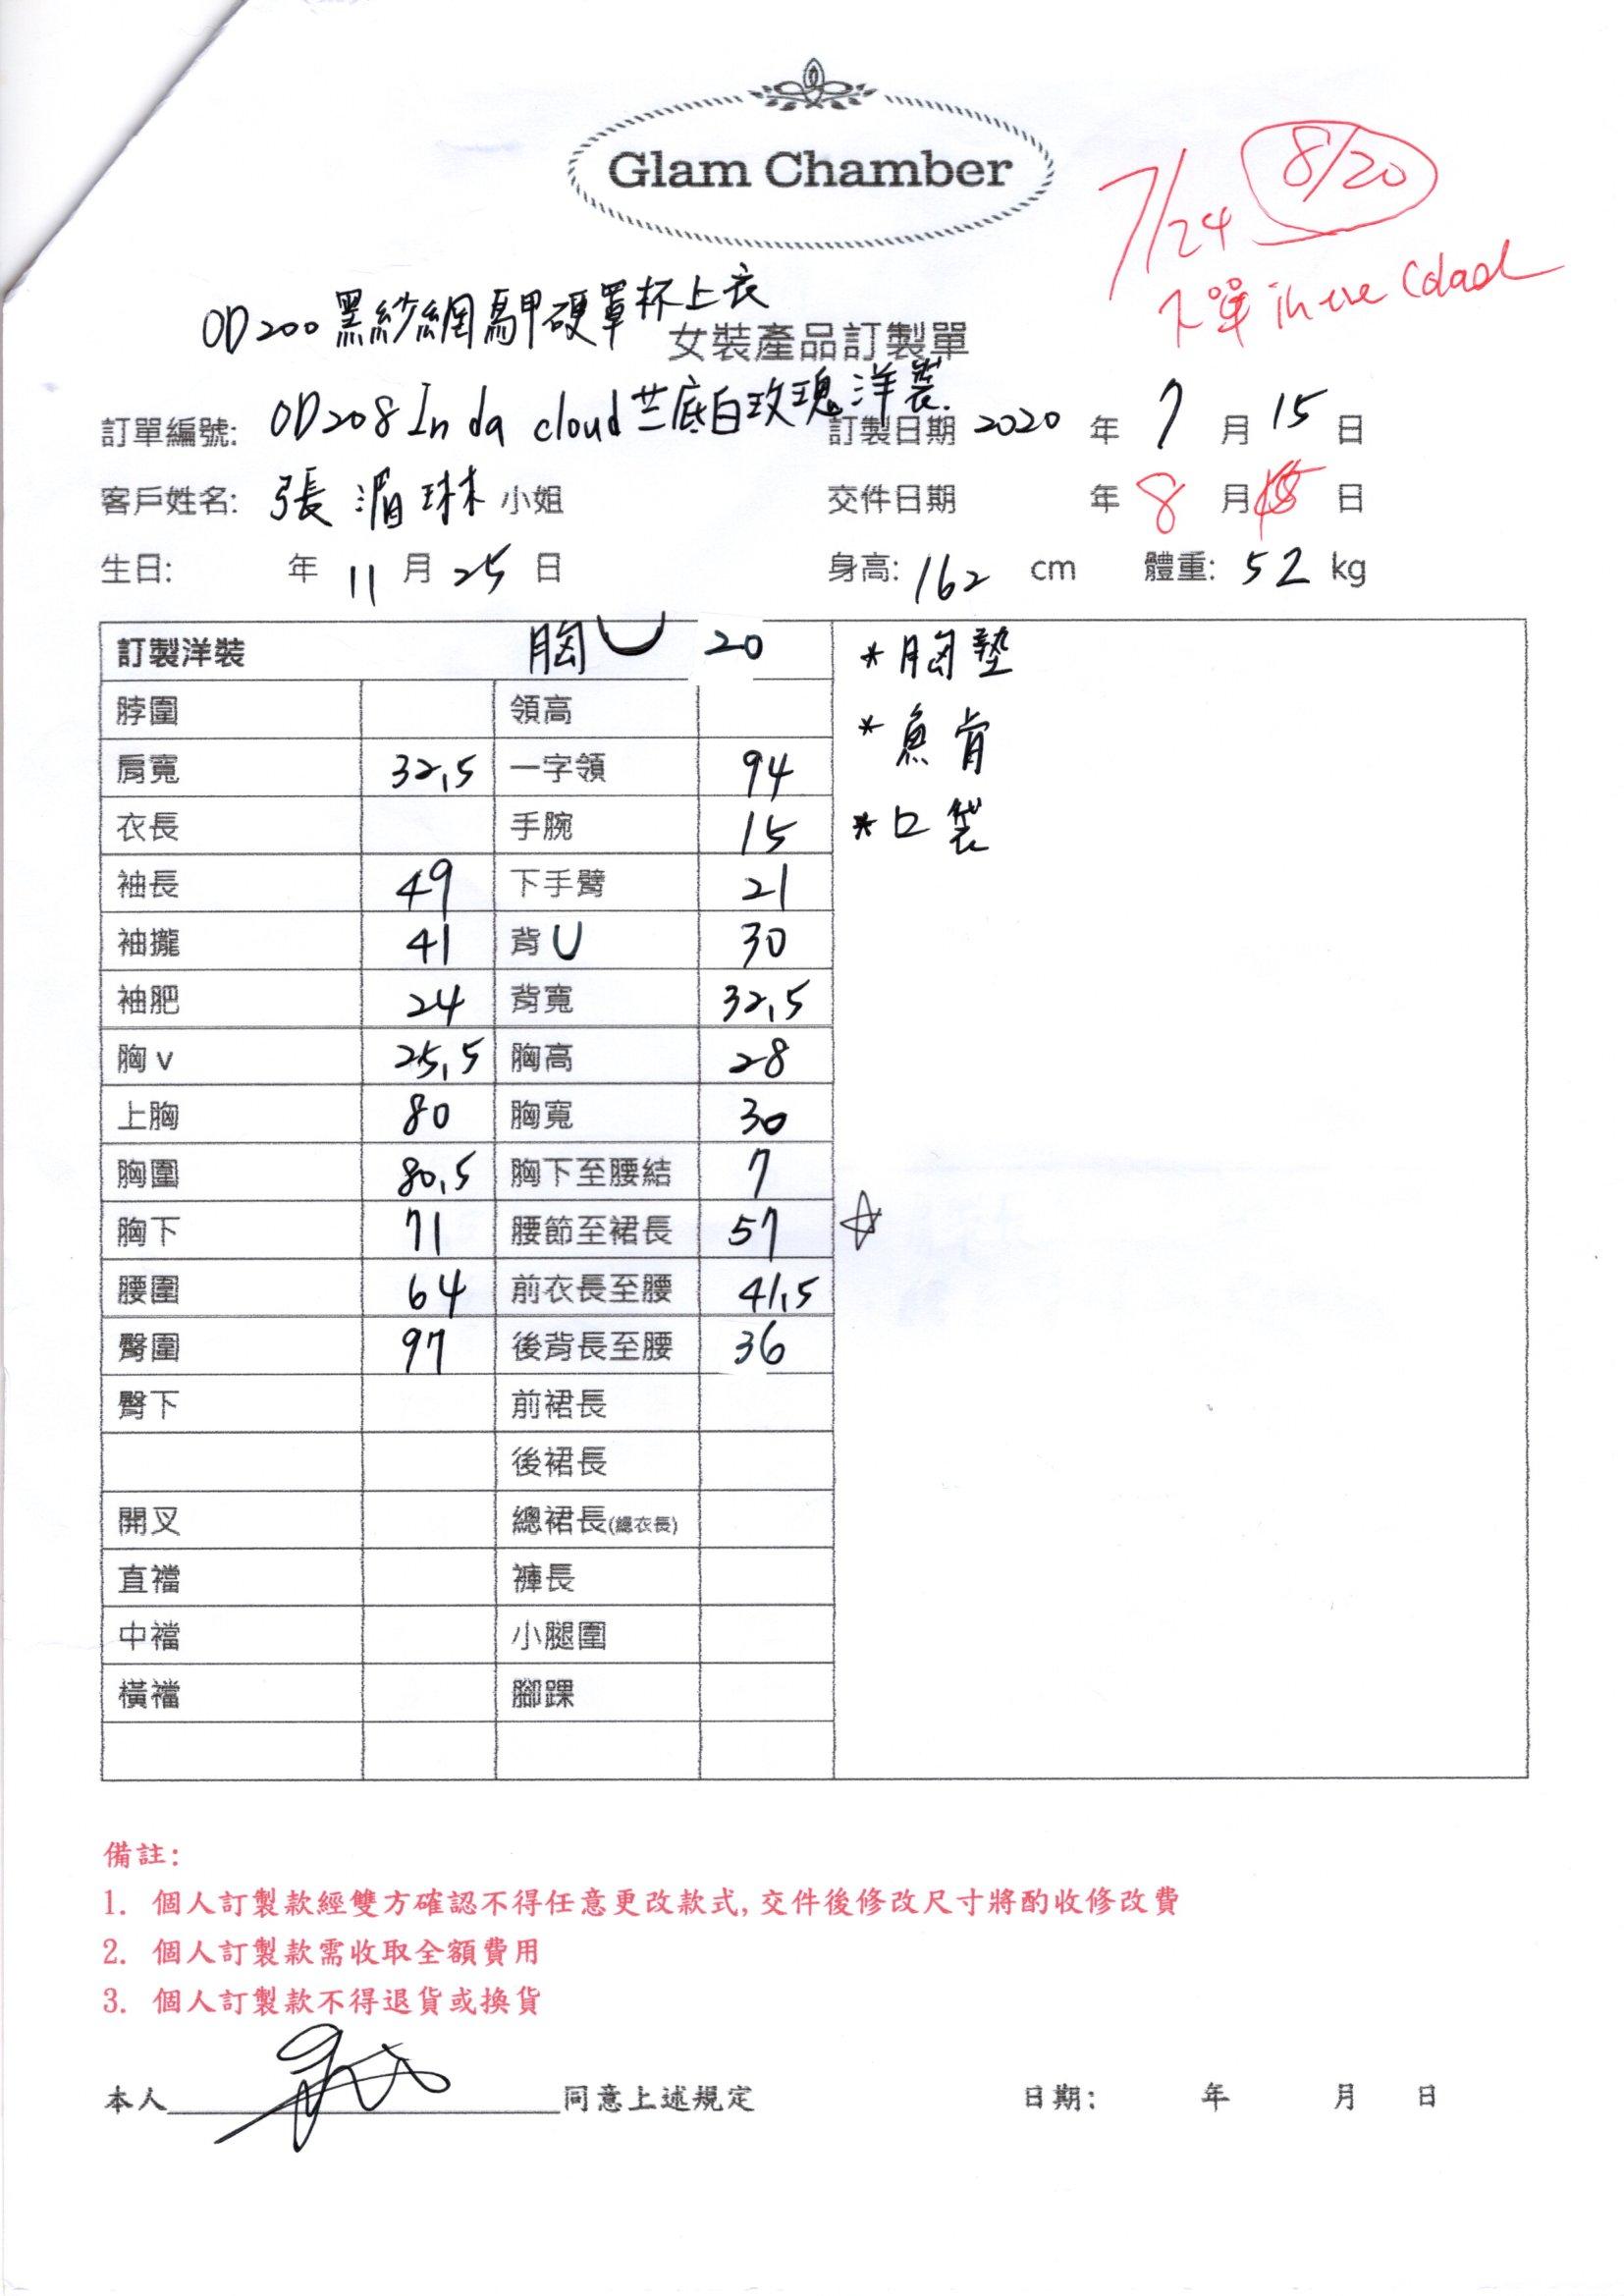 Glam Chamber
7/24 8/20
下單 in the Cloud
OD200黑紗網馬甲硬罩杯上衣
女裝產品訂製單
訂單編號: OD208 In da cloud 芒底白玫瑰洋裝 訂製日期 2020 年 7 月 15 日
客戶姓名: 張湄琳 小姐 交件日期 年 8 月 日
生日: 年 11 月 25 日 身高: 162 cm 體重: 52 kg
訂製洋裝 胸U 20 *胸墊
脖圍 領高 *魚骨
肩寬 32,5 一字領 94
衣長 手腕 15 *口袋
袖長 49 下手臂 21
袖攏 41 背U 30
袖肥 24 背寬 32,5
胸v 25,5 胸高 28
上胸 80 胸寬 30
胸圍 80,5 胸下至腰結 7
胸下 71 腰節至裙長 57 ☆
腰圍 64 前衣長至腰 41,5
臀圍 97 後背長至腰 36
臀下 前裙長
後裙長
開叉 總裙長(總衣長)
直襠 褲長
中襠 小腿圍
橫襠 腳踝
備註:
1. 個人訂製款經雙方確認不得任意更改款式, 交件後修改尺寸將酌收修改費
2. 個人訂製款需收取全額費用
3. 個人訂製款不得退貨或換貨
本人 同意上述規定 日期: 年 月 日